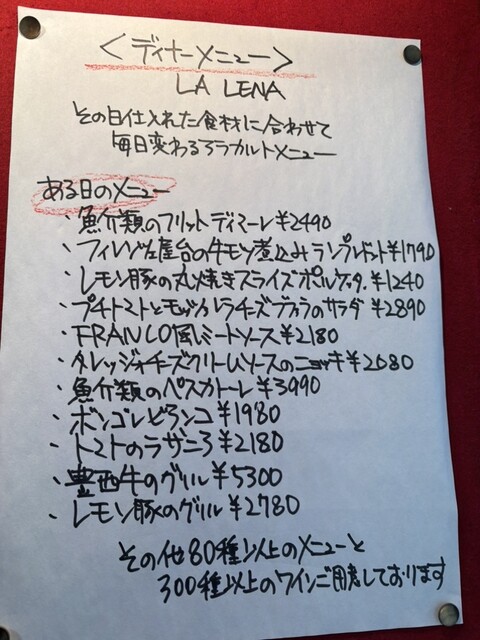 ＜ディナーメニュー＞
LA LENA
その日仕入れた食材に合わせて
毎日変わるアラカルトメニュー
ある日のメニュー
・魚介類のフリットディマーレ ¥2490
・フィレンツェ屋台の牛モツ煮込みランプレドット ¥1790
・レモン豚の丸焼きスライスポルケッタ ¥1240
・プチトマトとモッツァレラチーズブッラータのサラダ ¥2890
・FRANCO風ミートソース ¥2180
・タレッジョチーズクリームソースのニョッキ ¥2080
・魚介類のペスカトーレ ¥3990
・ボンゴレビアンコ ¥1980
・トマトのラザニア ¥2180
・豊西牛のグリル ¥5300
・レモン豚のグリル ¥2780
その他80種以上のメニューと
300種以上のワインご用意しております